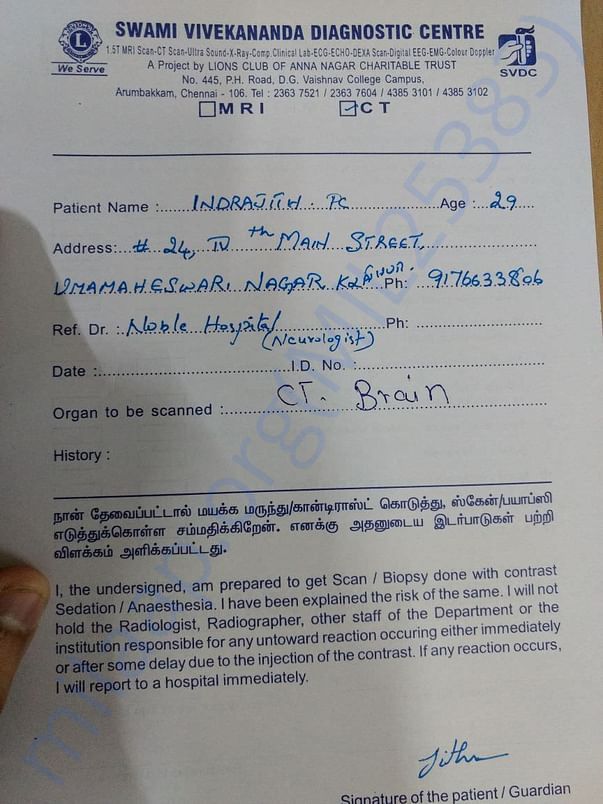 SWAMI VIVEKANANDA DIAGNOSTIC CENTRE
1.5T MRI Scan-CT Scan-Ultra Sound-X-Ray-Comp.Clinical Lab-ECG-ECHO-DEXA Scan-Digital EEG-EMG-Colour Doppler
A Project by LIONS CLUB OF ANNA NAGAR CHARITABLE TRUST
No. 445, P.H. Road, D.G. Vaishnav College Campus,
Arumbakkam, Chennai - 106. Tel : 2363 7521 / 2363 7604 / 4385 3101 / 4385 3102
L
We Serve
SVDC
MRI CT
Patient Name : INDRAJITH. PC Age : 29
Address: # 24, IVth MAIN STREET,
UMAMAHESWARI NAGAR Ph: 9176633806
Ref. Dr. : Noble Hospital Ph:
(Neurologist)
Date : I.D. No. :
Organ to be scanned : CT. Brain
History :
நான் தேவைப்பட்டால் மயக்க மருந்து/கான்டிராஸ்ட் கொடுத்து, ஸ்கேன்/பயாப்ஸி
எடுத்துக்கொள்ள சம்மதிக்கிறேன். எனக்கு அதனுடைய இடர்பாடுகள் பற்றி
விளக்கம் அளிக்கப்பட்டது.
I, the undersigned, am prepared to get Scan / Biopsy done with contrast
Sedation / Anaesthesia. I have been explained the risk of the same. I will not
hold the Radiologist, Radiographer, other staff of the Department or the
institution responsible for any untoward reaction occuring either immediately
or after some delay due to the injection of the contrast. If any reaction occurs,
I will report to a hospital immediately.
Signature of the patient / Guardian